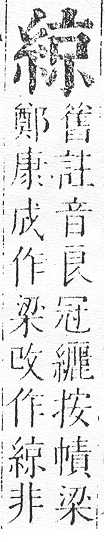 綡
舊註音良冠纚按幘梁
鄭康成作梁改作綡非